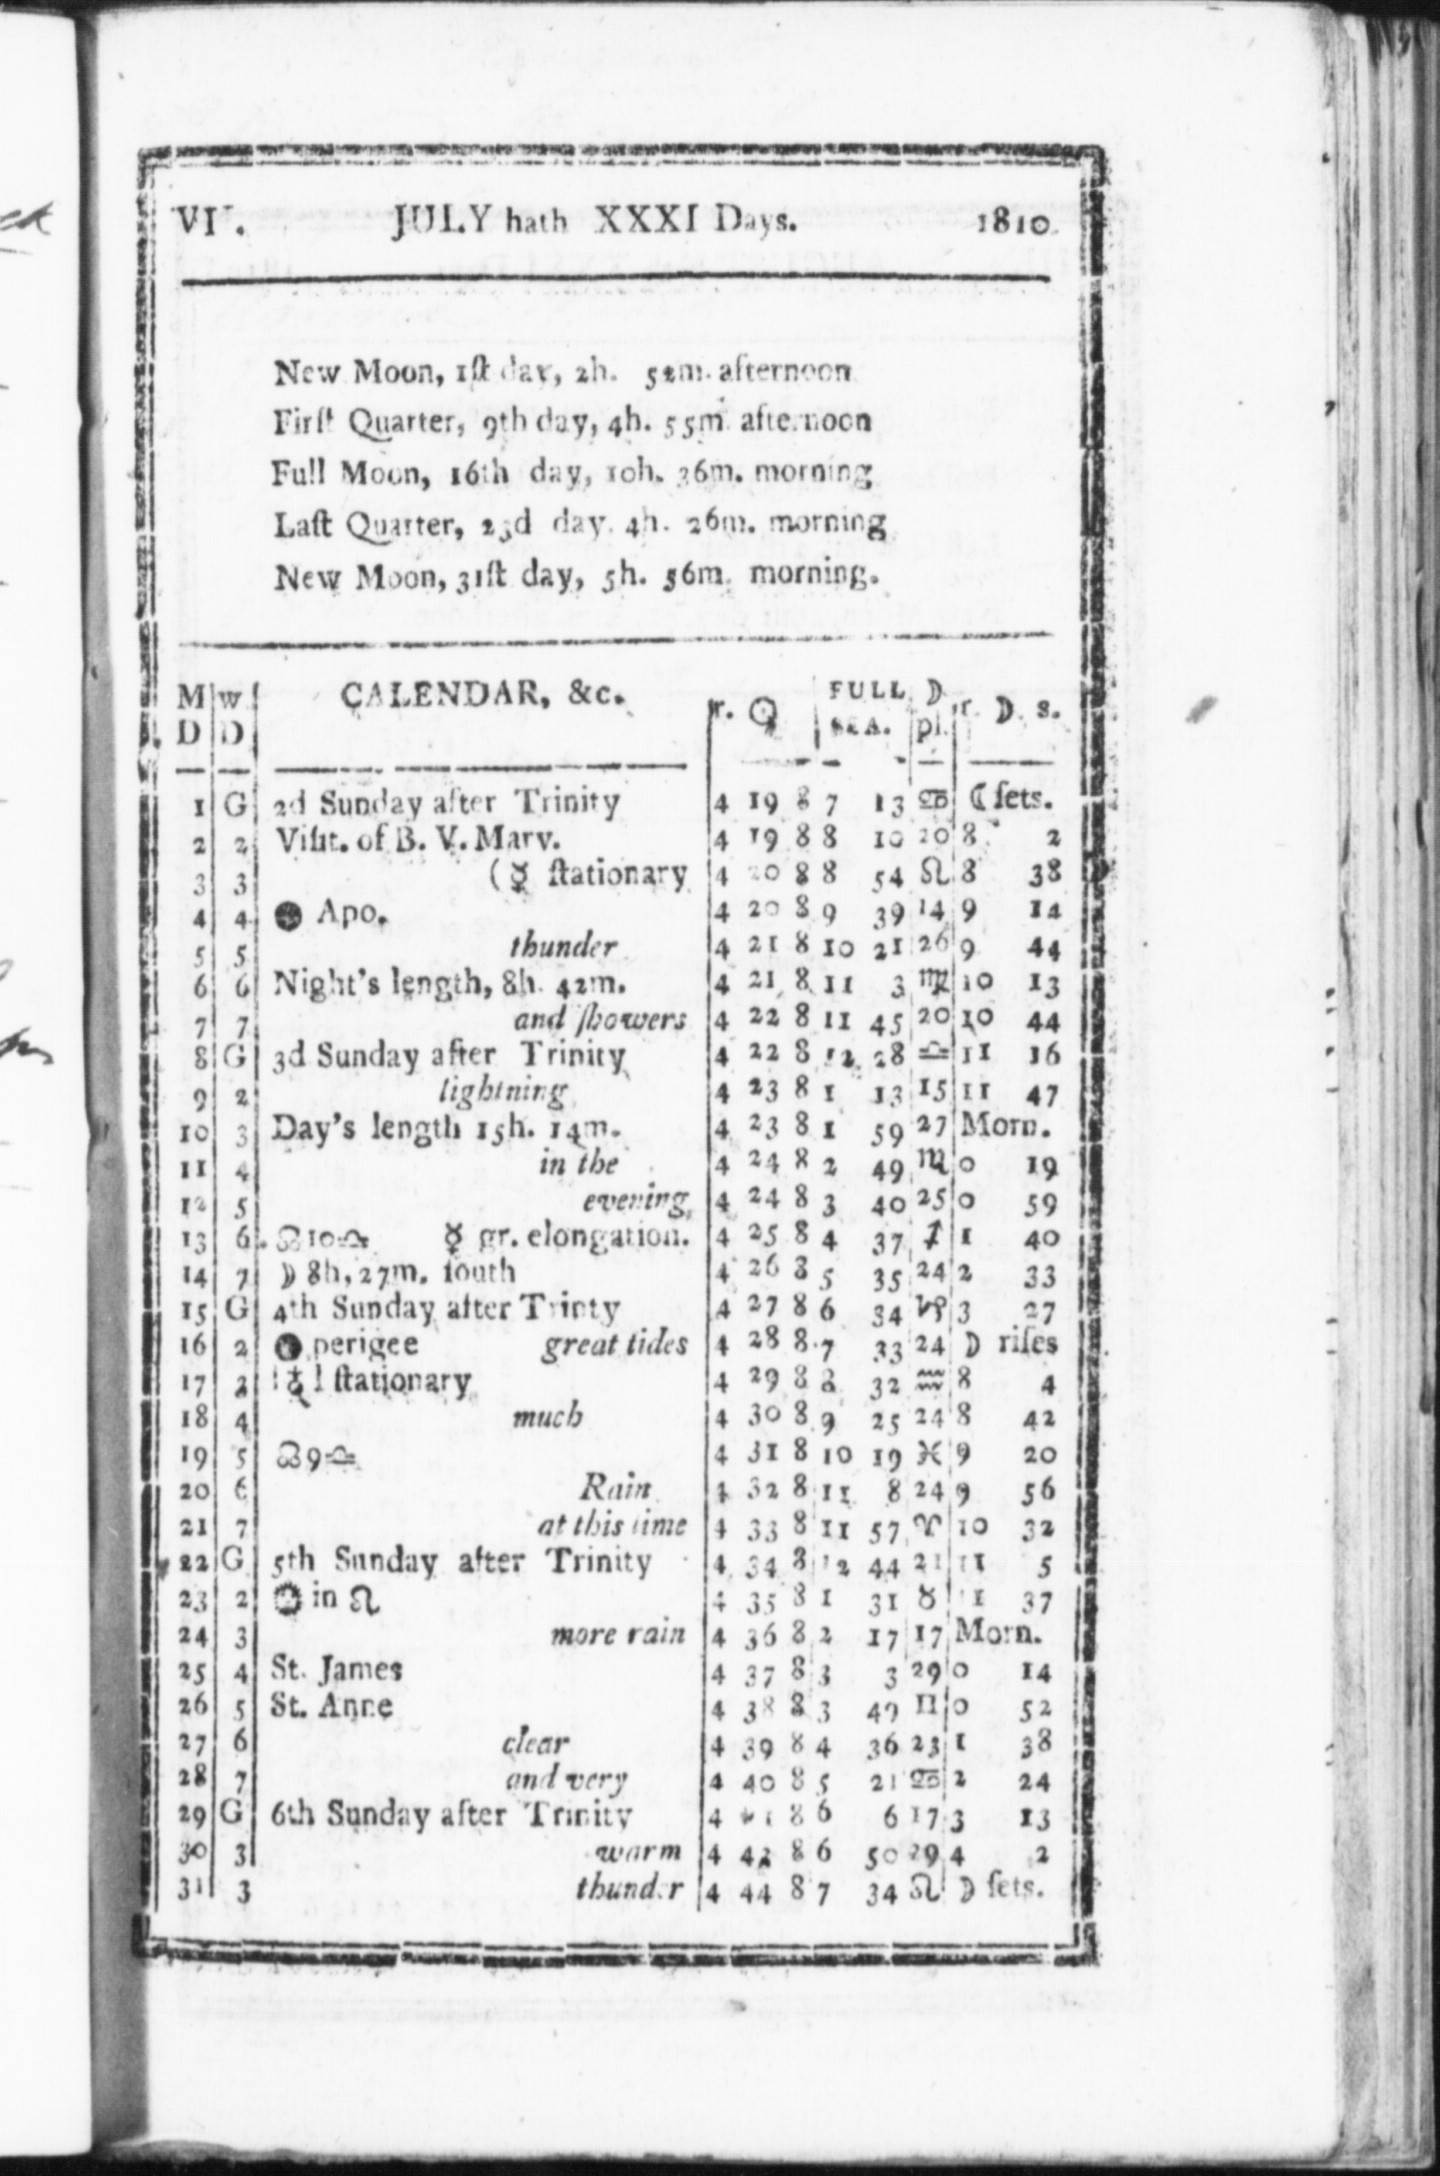 VII. JULY hath XXXI Days. 1810
New Moon, 1ſt day, 2h. 52m. afternoon
Firſt Quarter, 9th day, 4h. 55m. afternoon
Full Moon, 16th day, 10h. 36m. morning
Laſt Quarter, 23d day, 4h. 26m. morning
New Moon, 31ſt day, 5h. 56m. morning.
M D | W D | CALENDAR, &c. | r. ☉ | FULL SEA. | ☽ pl. | r. ☽ s.
1 G 2d Sunday after Trinity 4 19 8 7 13 ♋ ☾ ſets.
2 2 Viſit. of B. V. Mary. 4 19 8 8 10 20 8 2
3 3 (☿ ſtationary 4 20 8 8 54 ♌ 8 38
4 4 ● Apo. 4 20 8 9 39 14 9 14
5 5 thunder 4 21 8 10 21 26 9 44
6 6 Night's length, 8h. 42m. 4 21 8 11 3 ♍ 10 13
7 7 and ſhowers 4 22 8 11 45 20 10 44
8 G 3d Sunday after Trinity 4 22 8 12 28 ♎ 11 16
9 2 lightning 4 23 8 1 13 15 11 47
10 3 Day's length 15h. 14m. 4 23 8 1 59 27 Morn.
11 4 in the 4 24 8 2 49 ♏ 0 19
12 5 evening 4 24 8 3 40 25 0 59
13 6 ☊ 10 ♎ ☿ gr. elongation. 4 25 8 4 37 ♐ 1 40
14 7 ☽ 8h, 27m. ſouth 4 26 8 5 35 24 2 33
15 G 4th Sunday after Trinty 4 27 8 6 34 ♑ 3 27
16 2 ● perigee great tides 4 28 8 7 33 24 ☽ riſes
17 3 ſtationary 4 29 8 8 32 ♒ 8 4
18 4 much 4 30 8 9 25 24 8 42
19 5 ☊ 9 ♎ 4 31 8 10 19 ♓ 9 20
20 6 Rain 4 32 8 11 8 24 9 56
21 7 at this time 4 33 8 11 57 ♈ 10 32
22 G 5th Sunday after Trinity 4 34 8 12 44 21 11 5
23 2 ☉ in ♌ 4 35 8 1 31 ♉ 11 37
24 3 more rain 4 36 8 2 17 17 Morn.
25 4 St. James 4 37 8 3 3 29 0 14
26 5 St. Anne 4 38 8 3 49 ♊ 0 52
27 6 clear 4 39 8 4 36 23 1 38
28 7 and very 4 40 8 5 21 ♋ 2 24
29 G 6th Sunday after Trinity 4 41 8 6 6 17 3 13
30 3 warm 4 42 8 6 50 29 4 2
31 3 thunder 4 44 8 7 34 ♌ ☽ ſets.